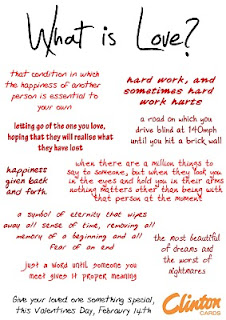 What is Love?
that condition in which
the happiness of another
person is essential to
your own
hard work, and
sometimes hard
work hurts
letting go of the one you love,
hoping that they will realise what
they have lost
a road on which you
drive blind at 140mph
until you hit a brick wall
happiness
given back
and forth
when there are a million things to
say to someone, but when they look you
in the eyes and hold you in their arms
nothing matters other than being with
that person at the moment
a symbol of eternity that wipes
away all sense of time, removing all
memory of a beginning and all
fear of an end
the most beautiful
of dreams and
the worst of
nightmares
just a word until someone you
meet gives it proper meaning
Give your loved one something special,
this Valentines Day, February 14th
Clinton
CARDS